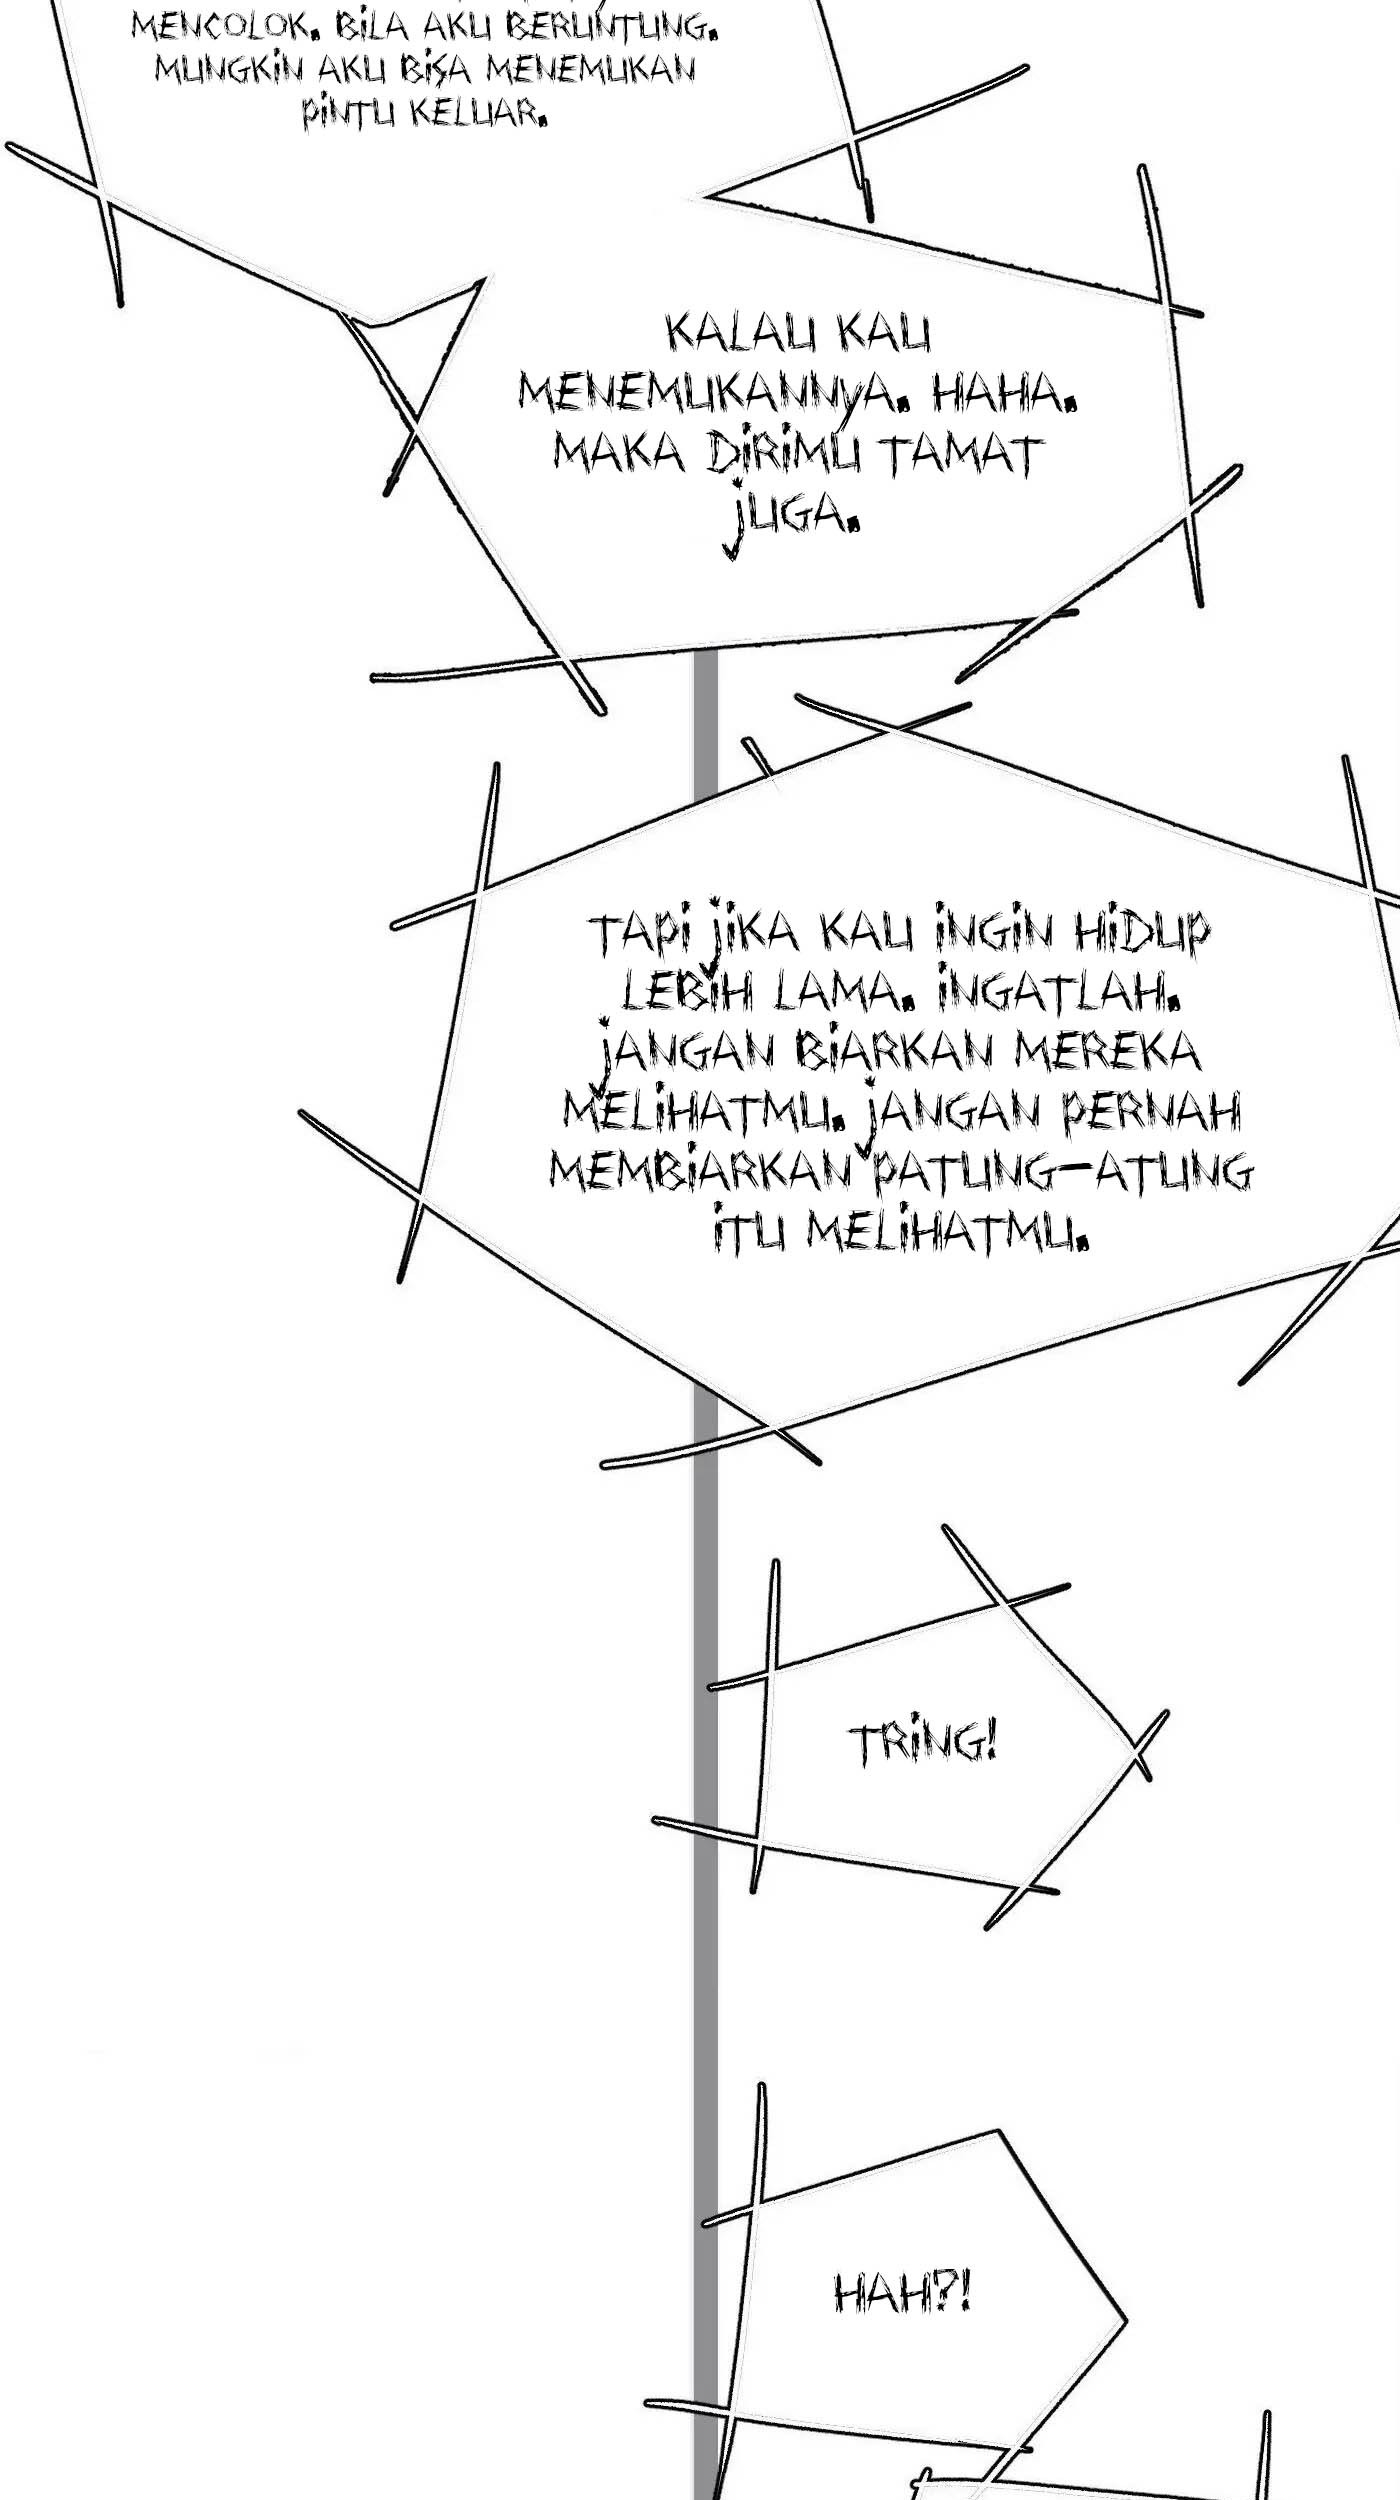 MENCOLOK. BILA AKU BERUNTUNG.
MUNGKIN AKU BISA MENEMUKAN
PINTU KELUAR.
KALAU KAU
MENEMUKANNYA. HAHA.
MAKA DIRIMU TAMAT
JUGA.
TAPI JIKA KAU INGIN HIDUP
LEBIH LAMA. INGATLAH.
JANGAN BIARKAN MEREKA
MELIHATMU. JANGAN PERNAH
MEMBIARKAN PATUNG-ATUNG
ITU MELIHATMU.
TRING!
HAH?!